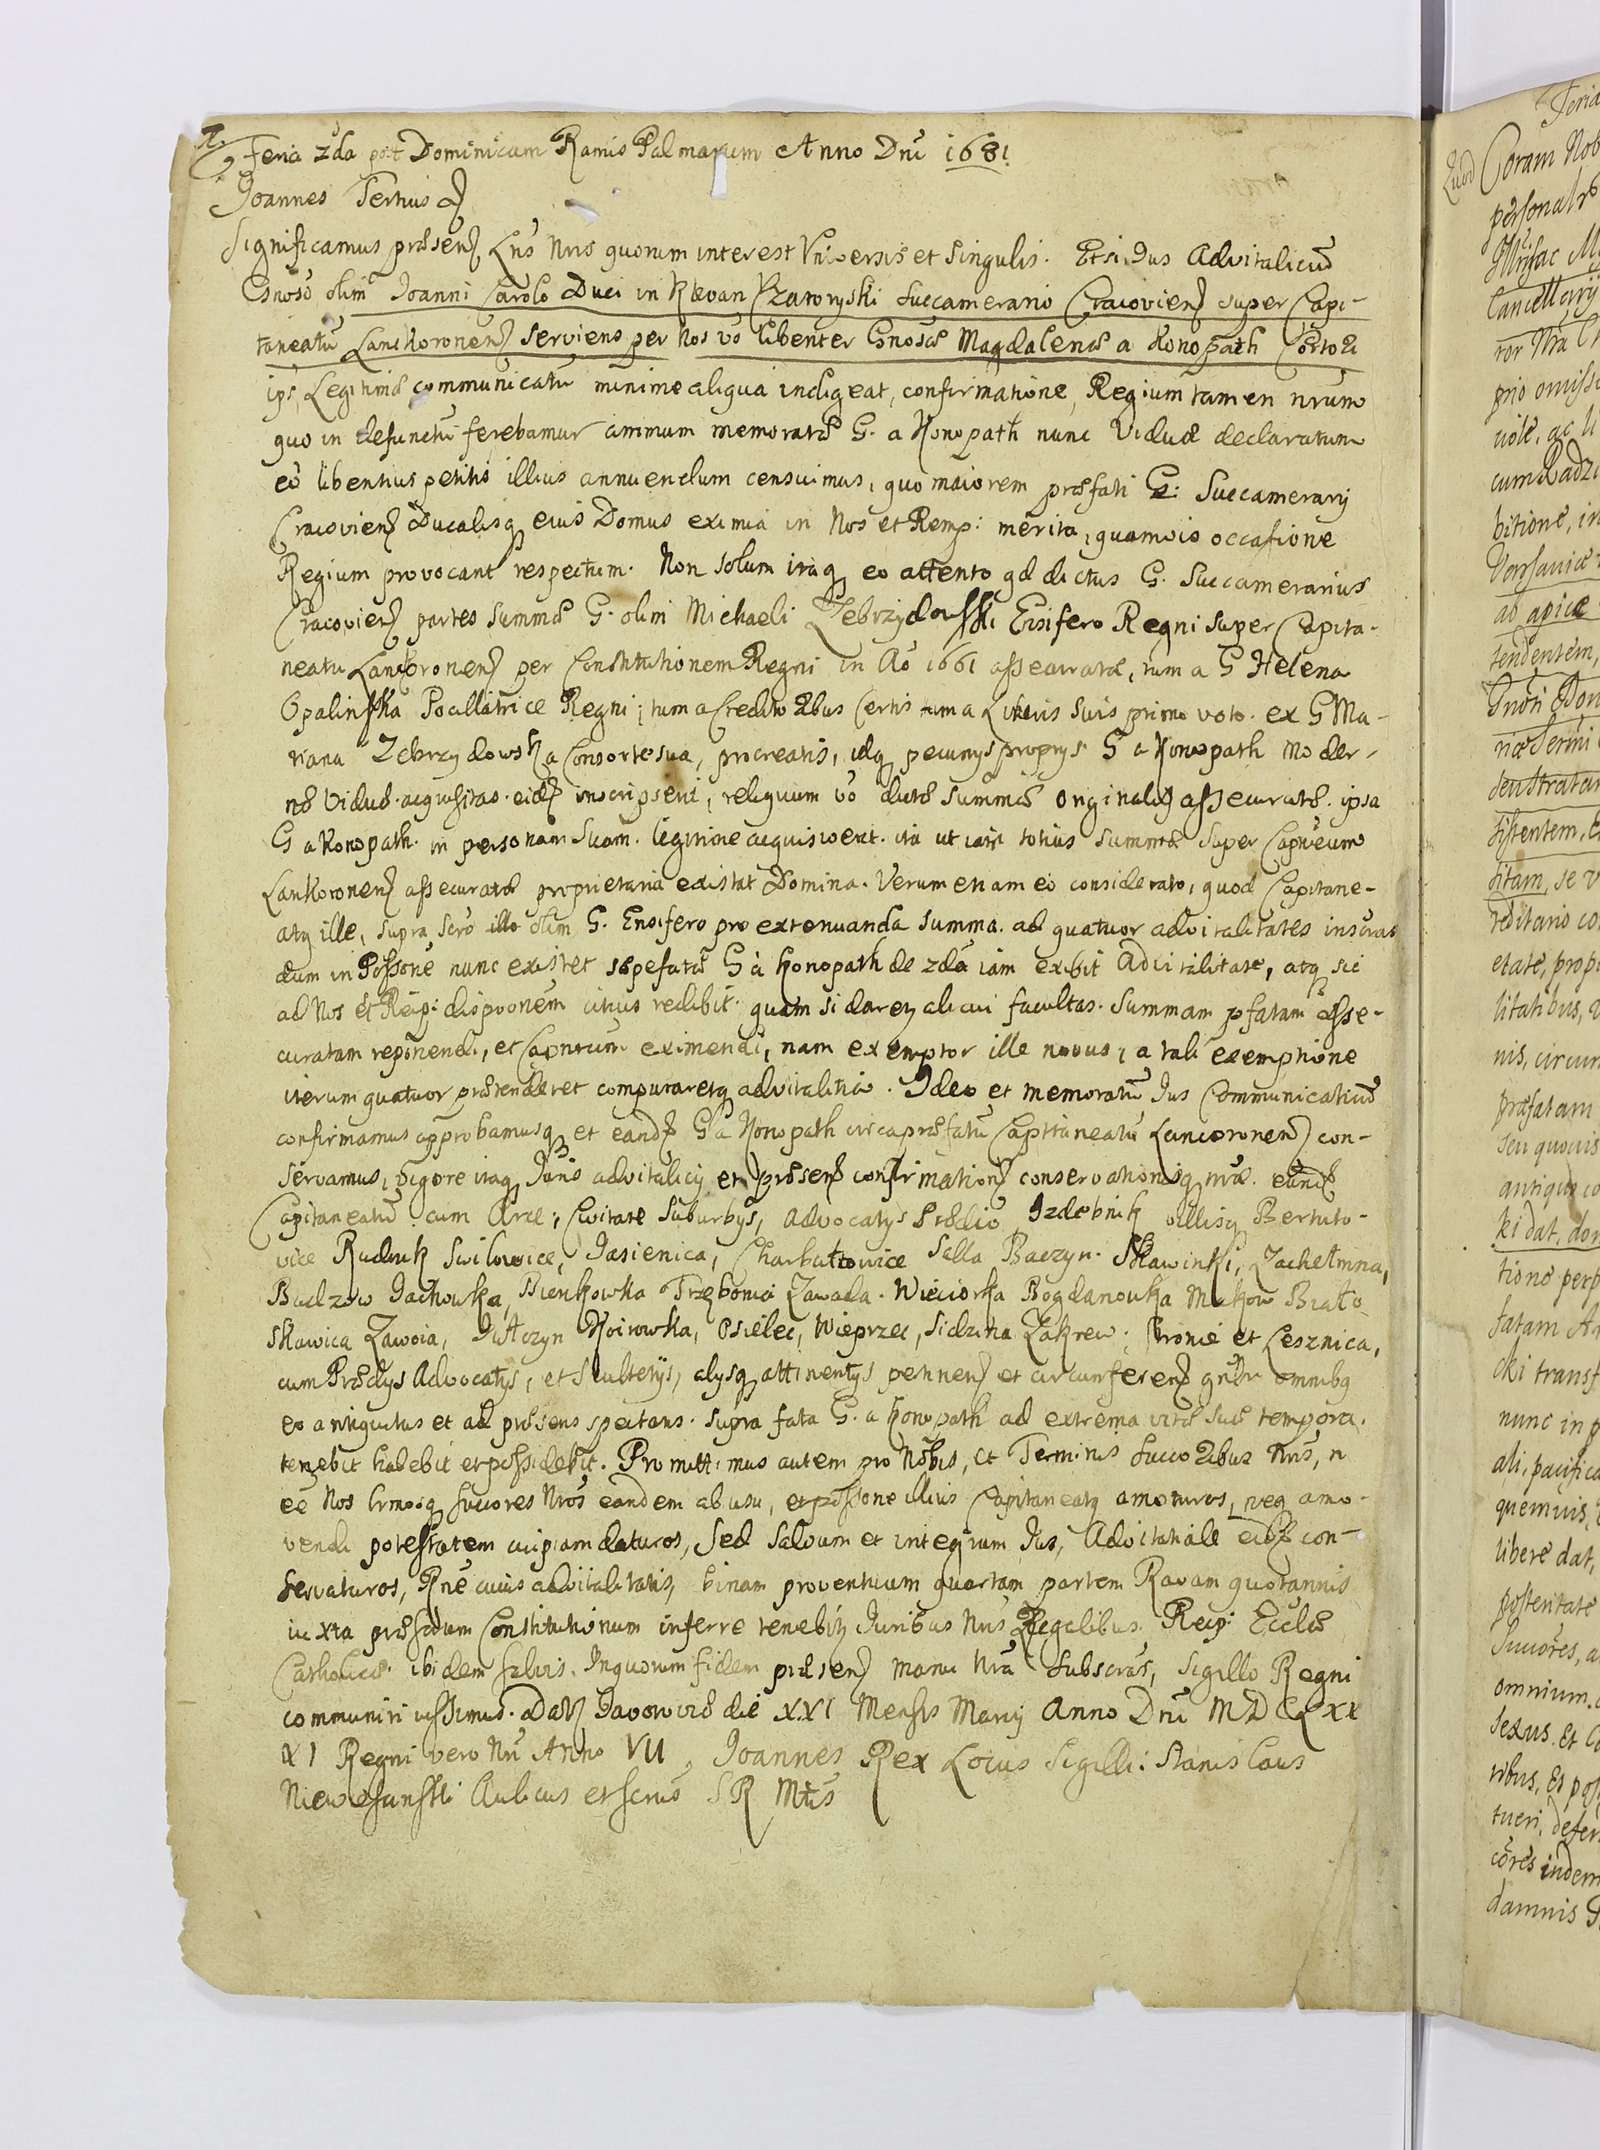 Feria 2da post Dominicam Ramis Palmarum Anno Dni 1681
Joannes Tertius
Significamus præsen Lris Nris quorum interest Universis et Singulis. Etsi Jus Advitalicium
Gnoso olim Joanni Carolo Duci in Klevan Czatoryski Succamerario Cracovien super Capi-
taneatu Lanckoronen Serviens per Nos vo libenter Gnosæ Magdalenæ a Konopath Consorti
ips Legitimæ communicatu minime aliqua indigeat, confirmatione, Regium tamen nrum
quo in defunctu ferebamur animum memoratæ G. a Konopath nunc Viduæ declaratum
eo libentius petitis illius annuendum censuimus, quo maiorem præfati G: Succamerarij
Cracovien Ducalisq eius Domus eximia in Nos et Remp: merita, quamvis occasione
Regium provocant respectum. Non solum itaq eo attento qd dictus G. Succamerarius
Cracovien partes summæ G. olim Michaeli Zebrzydowski Ensifero Regni super Capita-
neatu Lanckoronen per Constitutionem Regni in Ao 1661 assecuratæ, tum a G Helena
Opalinska Pocillatrice Regni, tum a Creditoribus Certis tum a Liberis Suis primo voto ex G Ma-
riana Zebrzydowska Consorte sua, procreatis, idq pecunys proprys G a Konopath moder-
næ Viduæ acquisitas eid inscripserit, reliquum vo dictæ summæ originalis assecuratæ ipsa
G a Konopath in personam suam legitime acquisiverit ita ut iam totius summæ super Capneum
Lankoronen assecuratæ proprietaria existat Domina. Verum etiam eo considerato, quod Capitane-
atq ille, supra scro illo olim G. Ensifero pro extenuanda summa ad quatuor advitalitates inscrat
dum in Possone nunc existet sæpefatæ G à Konopath de 2da iam exibit Advitalitate, atq sic
ad Nos et Reip: disponem citius redibit quam si daretur alicui facultas summam pfatam asse-
curatam reponendi, et Capneum eximendi, nam exemptor ille novus, a tali exemptione
iterum quatuor prætenderet computaretq advitalitia. Ideo et memoratu Jus Communicativum
confirmamus approbamusq et eand G a Konopath circa præfatu Capitaneatu Lancoronen con-
servamus, vigore itaq Juris advitalicij et præsen confirmation conservationisq nræ eund
Capitaneatu cum Arce, Civitate Suburbys, Advocatys Prædio Izdebnik villisq Bertuto-
vice Rudnik Swilowice, Jasienica, Charbutowice Sella Baczyn Skawinki, Zachelmna,
Budzow Jachowka, Bienkowka Trzebonia Zawada Wieciorka Bogdanowka Makow Biało
Skawica Zawoia, Juszczyn Koirowka, Osielec, Wieprzec, Sidzina Zakrew. Bronie et Lesznica,
cum Prædys Advocatys, et Scultetijs, alysq attinentys pertinen et circumferen gnbr omnibq
eo antiquitus et ad præsens spectans supra fata G. a Konopath ad extrema vitæ suæ tempora
tenebit habebit et possidebit. Promittimus autem pro Nobis, et Sermis Succoribus Nris, n
ee Nos Srmosq succores Nros eandem ab usu, et possone illius Capitaneatq amoturos, neq amo-
vendi potestatem cuipiam daturos, Sed Salvum et integrum Jus, Advitaliale eid con-
servaturos, Rne cuius advitalitatis, binam proventuum quartam partem Ravam quotannis
iuxta præscrtum Constitutionum inferre tenebit Juribus Nris Regalibus Reip: Ecclæ
Catholicæ ibidem salvis. In quorum fidem præsen manu Nra subscras, Sigillo Regni
communiri iussimus. Dat Javoroviæ die XXI Mensis Marcij Anno Dni MDCLXX
XI Regni vero Nri Anno VII, Joannes Rex Locus Sigilli: Stanislaus
Niewesinski Aulicus et scrius S R Mtis
Feria
Quod Coram Nob
personalr
Cancellarij
ror Nra
prio omissi
viole, ac li
cum Radzi
bitione, in
ab apice
tendentem,
Gnosi Don
deustratam
sistentem,
sitam, se v
reditario co
etate, propi
litatibus,
nis, circum
præfatam
seu quovis
antiquo co
ki dat, don
tione perp
fatam Ar
cki transf
nunc in p
ali, pacifica
quemvis,
libere dat,
posteritate
Succores, a
omnium
sexus. Et
ribus, Et poss
tueri, defen
cores indem
damnis